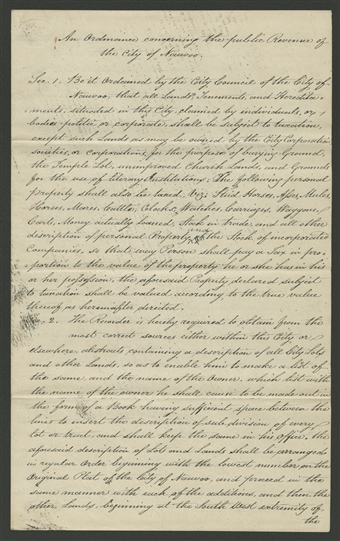 An Ordinance concerning the public Revenue of
the City of Nauvoo.
Sec. 1. Be it Ordained by the City Council of the City of
Nauvoo, that all Lands, Tenements, and Heredita-
ments, situated in this City, claimed by individuals, or
bodies politic or corporate, shall be subject to taxation,
except such Lands as may be owned by the City Corporation
societies, or corporations, for the purpose of burying Ground,
the Temple Lot, unimproved Church Lands, and Grounds
for the use of literary Institutions. The following personal
property shall also be taxed, viz: Stud Horses, Asses, Mules,
Horses, Mares, Cattle, Clocks, Watches, Carriages, Waggons,
Carts, Money actually loaned, Stock in Trade, and all other
description of personal Property, and the Stock of incorporated
Companies, so that every Person shall pay a Tax in pro-
portion to the value of the property he or she has in his
or her possession, the aforesaid Property declared subject
to taxation shall be valued according to the true value
thereof, as hereinafter directed.
Sec. 2. The Recorder is hereby required to obtain from the
most correct sources either within this City or
elsewhere, abstracts containing a description of all City Lots
and other Lands, so as to enable him to make a list of
the same and the name of the Owner, which list with
the name of the owner he shall cause to be made out in
the form of a Book having sufficient space between the
lines to insert the description of each division of every
lot or tract, and shall keep the same in his office, the
aforesaid description of Lots and Lands shall be arranged
in regular Order beginning with the lowest number on the
Original Plat of the City of Nauvoo, and proceed in the
same manner with each of the additions, and then the
other Lands, beginning at the South West extremity of
the